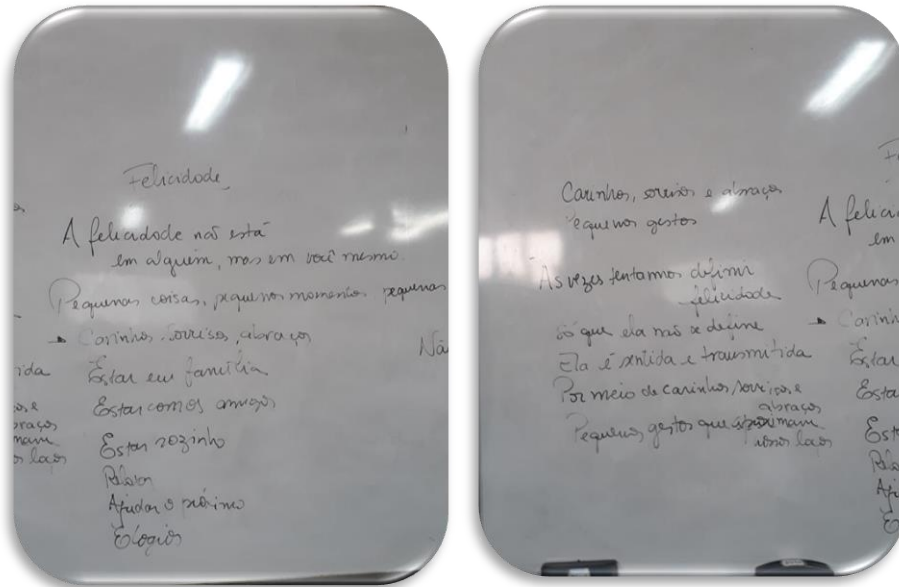 Felicidade
A felicidade não está
em alguém, mas em você mesmo.
Pequenas coisas, pequenos momentos, pequenas
Carinhos, sorrisos, abraços
Nã
Estar em família
Estar com os amigos
Estar sozinho
Ajudar o próximo
Elogios
ida
os e
braços
mam
os laços
Carinhos, sorrisos e abraços
Pequenos gestos
As vezes tentamos definir
felicidade
só que ela não se define
Ela é sentida e transmitida
Por meio de carinhos, sorrisos e
abraços
Pequenos gestos que aproximam
laços
A felici
em
Pequenas
Carinh
Estar
Esta
Est